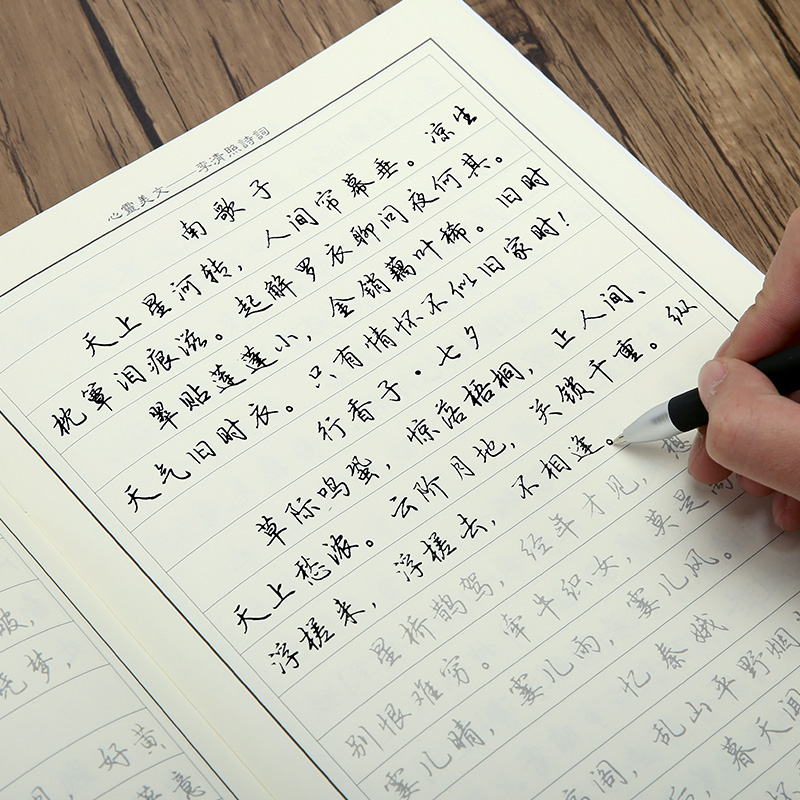 心靈美文——李清照詩詞
南歌子
天上星河转，人间帘幕垂。凉生
枕簟泪痕滋。起解罗衣聊问夜何其。
翠贴莲蓬小，金销藕叶稀。旧时
天气旧时衣。只有情怀不似旧家时！
行香子·七夕
草际鸣蛩，惊落梧桐，正人间、
天上愁浓。云阶月地，关锁千重。纵
浮槎来，浮槎去，不相逢。
星桥鹊驾，经年才见，想
别恨难穷。牵牛织女，莫是离
霎儿晴，霎儿雨，霎儿风。
忆秦娥
高阁，乱山平野烟
后，暮天闻
梦，
好黄
意